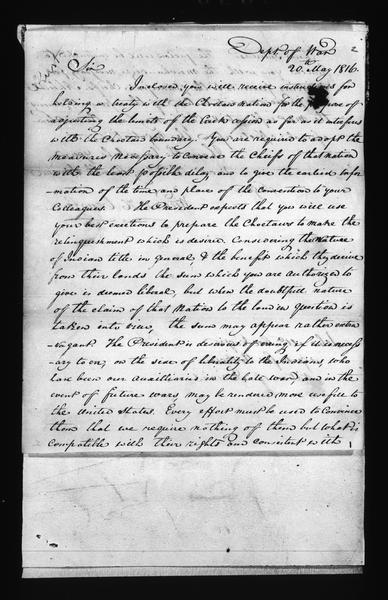 Dept. of War 2
20th May 1816.
Sir
Inclosed you will receive instructions for
holding a treaty with the Choctaw Nation for the purpose of
adjusting the limits of the Creek cession as far as it interferes
with the Choctaw boundary. You are required to adopt the
measures necessary to convene the Chiefs of that nation
with the least possible delay and to give the earliest infor-
mation of the time and place of the convention to your
Colleagues. The President expects that you will use
your best exertions to prepare the Choctaws to make the
relinquishment which is desired. Considering the nature
of Indian title in general, & the benefit which they derive
from their lands the sum which you are authorized to
give is deemed liberal, but when the doubtful nature
of the claim of that Nation to the land in question is
taken into view, the sum may appear rather extra-
vagant. The President is desirous of erring, if it is necess-
ary to err, on the side of liberality to the Indians, who
have been our auxiliaries in the late war, and in the
event of future wars may be rendered more useful to
the United States. Every effort must be used to convince
them that we require nothing of them but what is
compatible with their rights and consistent with